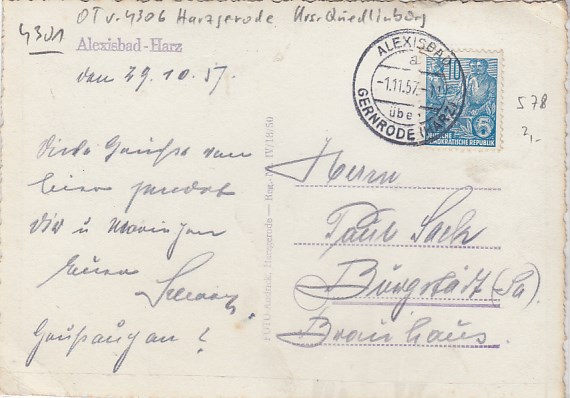 4301 OT v. 4306 Harzgerode Krs. Quedlinburg
Alexisbad-Harz
den 29.10.57.
ALEXISBAD
a
-1.11.57.
über
GERNRODE (HARZ)
10
6
DEUTSCHE
DEMOKRATISCHE REPUBLIK
578
2,-
Viele Grüsse von
hier sendet
Dir u
Herrn
Paul
Burgstädt (Sa).
Brauhaus.
FOTO-Harzgerode — Reg.-Nr. IV/18/50